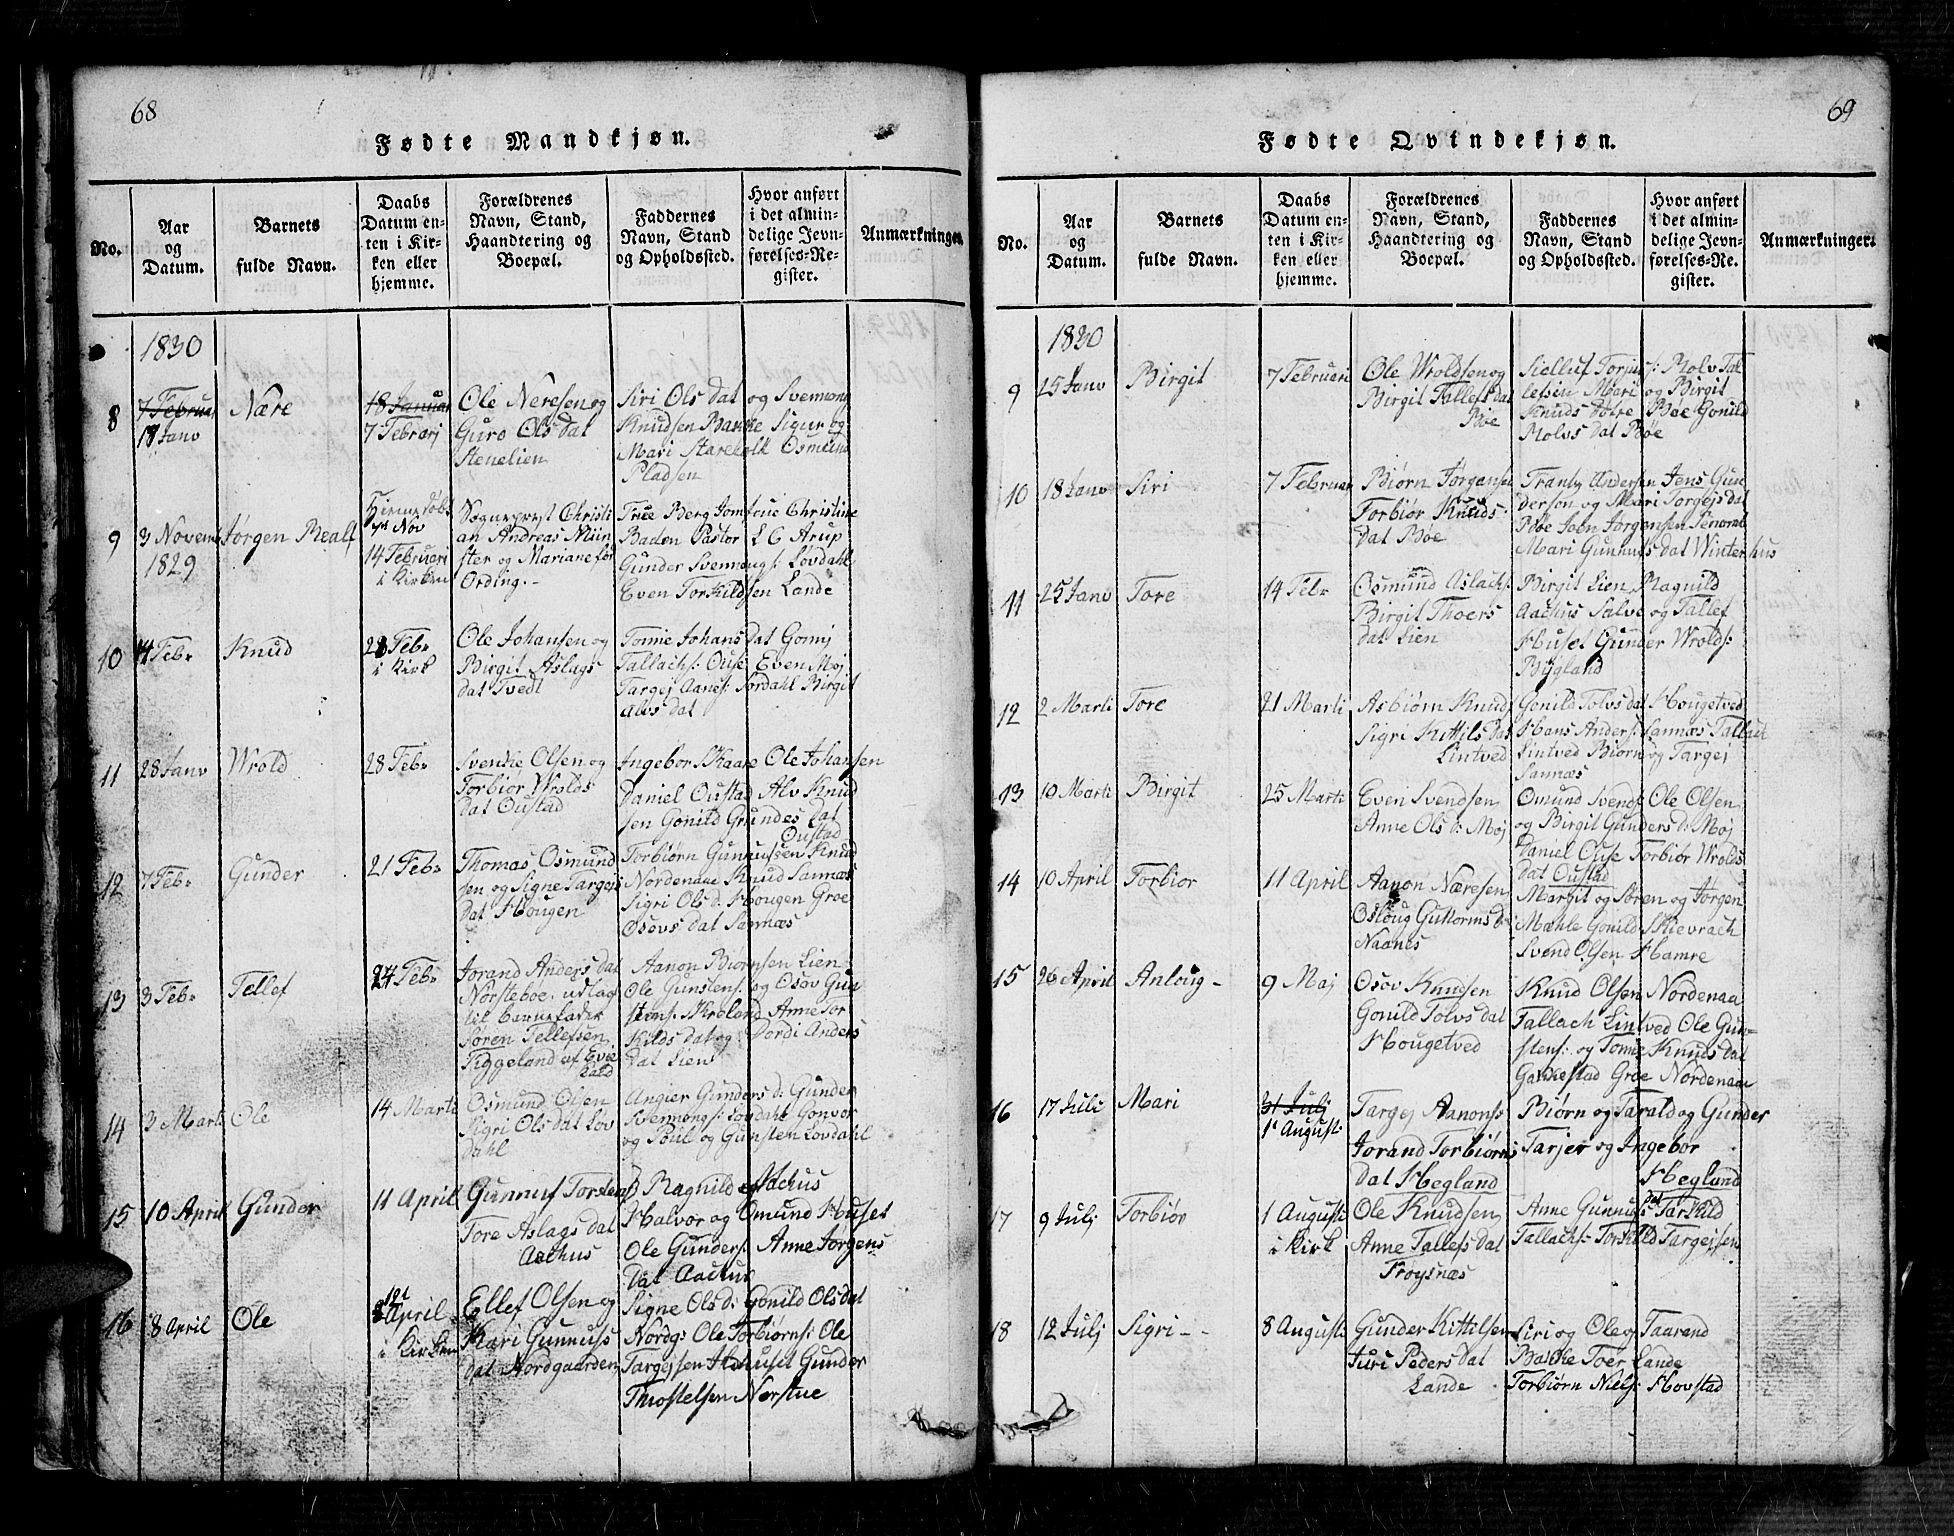 68
Fødte Mandkjøn.
No.
Aar og Datum.
Barnets fulde Navn.
Daabs Datum enten i Kirken eller hjemme.
Forældrenes Navn, Stand, Haandtering og Boepæl.
Faddernes Navn, Stand og Opholdssted.
Hvor anført i det almindelige Jevnførelses-Register.
Anmærkninger.
1830
8
7 Februar
18 Janv
Nære
18 Januar
7 Februarj
Ole Neresen og
Guro Ols Dat
Stenelien
Siri Ols Dat og Svenung
Knudsen Banke Sigur og
Mari Osmund
Pladsen
9
3 Novemb
1829
Jørgen Realf
Hjemmedøbt
Nov
14 Februari
i Kirken
Sognepræst Christi
an Andreas Mün
ster og Mariane før
Ording.-
Frue Berg Jomfrue Christine
Baden Pastor L C Arup
Gunder Svennungs: Løvdahl
Even Torkildsen Lande
10
14 Febr
Knud
28 Febr
i Kirk
Ole Johansen og
Birgit Aslags
dat Tvedt
Tonne Johans Dat Gonnj
Tallachs: Ouse Even Moj
Targej Aanes: Sordahl Birgit
Alvs dat
11
28 Janv
Wrold
28 Febr
Svenke Olsen og
Torbiør Wrolds
Dat Oustad
Ingebor Skaare Ole Johansen
Daniel Oustad Alv Knud
sen Gonild Grundes Dat
Oustad
12
7 Febr
Gunder
21 Febr
Thomas Osmund
sen og Signe Targejs
Dat Hougen
Torbiørn Gunnufsen Knud
Nordenaae Knud Sannæs
Sigri Ols d: Hougen Groe
Osovs dat Sannæs
13
3 Febr
Tellef
27 Febr
Jorand Anders dat
Nørstebøe, udlagt
til barnefader
Søren Tellefsen
Figgeland af Evie
Land
Aanon Biørnsen Lien
Ole Gunstens: og Osov Gun
stens: Skreland Anne Tor
kilds dat og Dordi Anders
Dat Lien
14
3 Marti
Ole
14 Marti
Osmund Olsen
Sigri Ols dat Løv
dahl
Angier Gunders d: Gunder
Svennungs: Løvdahl Gonvor
og Poul og Gunsten Løvdahl
15
10 April
Gunder
11 April
Gunnuf Torstens
Tore Aslags dat
Aachus
Ragnild Aachus
Halvor og Omund Huset
Ole Gunders: Anne Jørgens
Dat Aachus
16
8 April
Ole
April
i Kirken
Ellef Olsen og
Kari Gunnufs
dat Nordgaarden
Signe Ols d: Gonild Ols dat
Nordgs Ole Torbiørns: Ole
Targejsen Huset Gunder
Throstelsen Norstue
69
Fødte Qvindekjøn.
No.
Aar og Datum.
Barnets fulde Navn.
Daabs Datum enten i Kirken eller hjemme.
Forældrenes Navn, Stand, Haandtering og Boepæl.
Faddernes Navn, Stand og Opholdssted.
Hvor anført i det almindelige Jevnførelses-Register.
Anmærkninger.
1830
9
25 Janv
Birgit
7 Februari
Ole Wroldsen og
Birgit Tallefs Dat
Bøe
Sielluf Torjus: Rolv Tal
lefsen Mari og Birgit
Knuds Døtre Bøe Gonild
Rolvs dat Bøe
10
18 Janv
Siri
7 Februari
Biørn Jørgensen
Torbiør Knuds
dat Bøe
Frantz Andersen Jens Gun
dersen og Mari Torgejs dat
Bøe John Jørgensen Senoml
Mari Gunnufs dat Winterhus
11
25 Janv
Tore
14 Febr
Osmund Aslachs:
Birgit Thoers
dat Lien
Birgit Lien Ragnild
Aachus Salve og Tallef
Huset Gunder Wrolds:
Bygland
12
2 Marti
Tore
21 Marti
Asbiørn Knud
Sigri Kittils dat
Lintved
Gonild Tolvs dat Hougetved
Hans Anders: Sannæs Tallach
Lintved Biørn og Targej
Sannæs
13
10 Marti
Birgit
25 Marti
Even Svendsen
Anne Ols d: Moj
Omund Svends: Ole Olsen
og Birgit Gunders d: Moj
Daniel Ouse Torbiør Wrolds
dat Oustad
14
10 April
Torbior
11 April
Aanon Næresen
Osloug Guttorms d:
Naanes
Margit og Søren og Jørgen
Mæhle Gonild Skievrach
Svend Olsen Hamre
15
26 April
Anloug -
9 Maj
Osov Knudsen
Gonild Tolvs dat
Hougetved
Knud Olsen Nordenaa
Tallach Lintved Ole Gun-
stens: og Tonne Knuds dat
Gakkestad Groe Nordenaa
16
17 Juli
Mari
31 Julj
1 Augusti
Targej Aanons
Jorand Torbiørns
dat Hegland
Biørn og Tarald og Gunder
Tarjer og Ingebor
Hegland
17
9 Julj
Torbiør
1 Augusti
i Kirk
Ole Knudsen
Anne Tallefs dat
Frøysnæs
Anne Gunnufs dat Tarkild
Tallachs: Torkild Targejsen
18
12 Julj
Sigri - -
8 Augusti
Gunder Kittilsen
Juri Peders dat
Lande
Siri og Ole og Taarand
Bakke Toer Lande
Torbiørn Niels: Hovstad